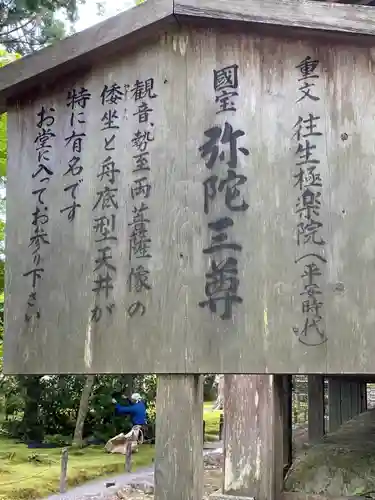 重文 往生極楽院(平安時代)
國宝 弥陀三尊
観音、勢至両菩薩像の
倭坐と舟底型天井が
特に有名です
お堂に入てお参り下さい